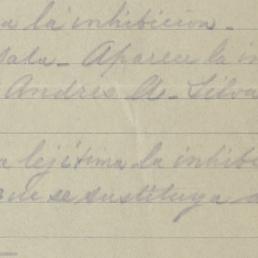 a la inhibicion.-
Sala.- Aparece la in
Andres A. Silva
a lejítima la inhibi
que se sustituya a